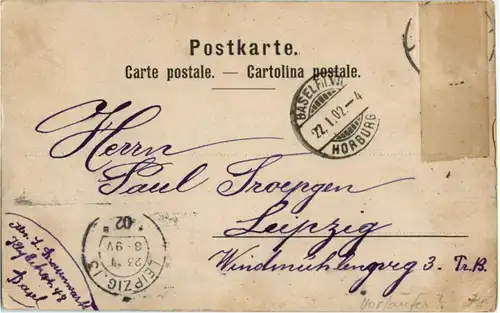 Postkarte.
Carte postale. — Cartolina postale.
BASEL
22.I.02.-4
HORBURG
Herrn
Paul Troepgen
Leipzig
Windmühlenweg 3. Tr. B.
LEIPZIG 13
23 1
8-9V
02
48
Basel
Vorläufer?